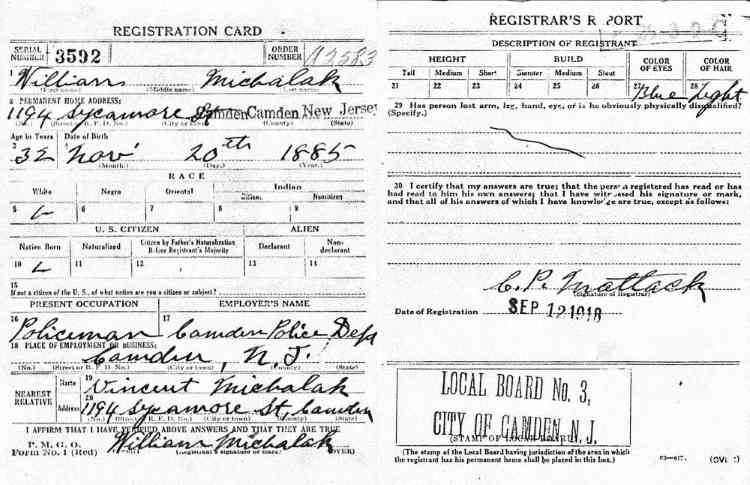 REGISTRATION CARD
SERIAL NUMBER 3592 ORDER NUMBER A2583
1 William Michalak
(First name) (Middle name) Last name
2 PERMANENT HOME ADDRESS:
1194 Sycamore St Camden Camden New Jersey
(No.) (Street or R. F. D. No.) (City or town) (County) (State)
Age in Years Date of Birth
3 32 4 Nov 20th 1885
(Month.) (Day.) (Year.)
RACE
White Negro Oriental Indian
Citizen. Noncitizen
5 6 7 8 9
U. S. CITIZEN ALIEN
Native Born Naturalized Citizen by Father's Naturalization Before Registrant's Majority Declarant Non-declarant
10 11 12 13 14
15
If not a citizen of the U. S., of what nation are you a citizen or subject?
PRESENT OCCUPATION EMPLOYER'S NAME
16 17
Policeman Camden Police Dept
18 PLACE OF EMPLOYMENT OR BUSINESS:
Camden, N.J.
(No.) (Street or R. F. D. No.) (City or town) (County) (State)
NEAREST RELATIVE
Name 19 Vincent Michalak
Address 20 1194 Sycamore St, Camden
(No.) (Street or R. F. D. No.) (City or town) (County) (State)
I AFFIRM THAT I HAVE VERIFIED ABOVE ANSWERS AND THAT THEY ARE TRUE
P. M. G. O.
Form No. 1 (Red) William Michalak
(Registrant's signature or mark) (OVER)
REGISTRAR'S REPORT
DESCRIPTION OF REGISTRANT
HEIGHT BUILD COLOR OF EYES COLOR OF HAIR
Tall Medium Short Slender Medium Stout
21 22 23 24 25 26 27 Blue 28 Light
29 Has person lost arm, leg, hand, eye, or is he obviously physically disqualified?
(Specify.)
30 I certify that my answers are true; that the person registered has read or has
had read to him his own answers; that I have witnessed his signature or mark,
and that all of his answers of which I have knowledge are true, except as follows:
C. P. Mattack
(Signature of Registrar)
Date of Registration SEP 12 1918
LOCAL BOARD No. 3,
CITY OF CAMDEN N. J.
(STAMP OF LOCAL BOARD)
(The stamp of the Local Board having jurisdiction of the area in which
the registrant has his permanent home shall be placed in this box.)